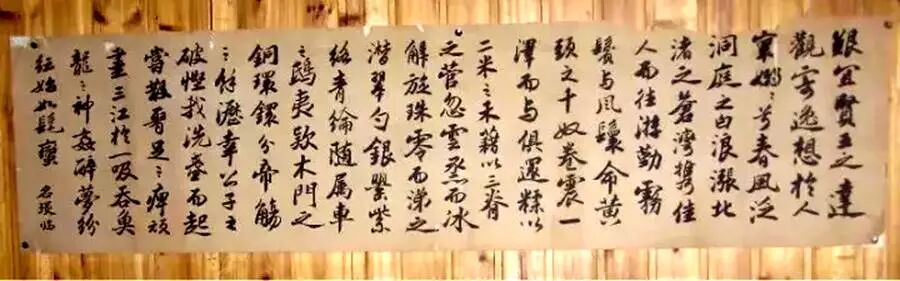 艱宜賢王之達
觀寄逸想於人
寰嫋〻兮春風泛
洞庭之白浪漲北
渚之蒼灣攜佳
人而往游勒霧
鬢與風鬟命黃
頭之千奴卷震一
澤而與俱還糅以
二米之禾藉以三脊
之菅忽雲烝而冰
解旋珠零而涕之
潸翠勺銀罌紫
絡青綸随属車
之鴟夷款木門之
銅環鐶分帝觴
〻餘瀝幸公子之
破慳我洗盞而起
嘗散腰足〻痺頑
盡三江於一吸吞魚
龍〻神姦醉夢紛
紜始如髦蠻